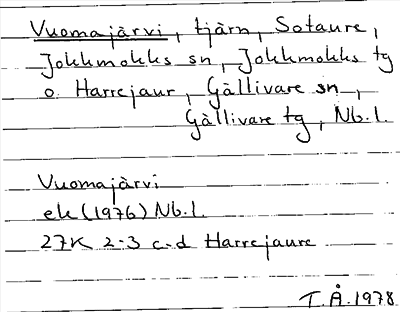 Vuomajärvi, tjärn, Sotaure,
Jokkmokks sn, Jokkmokks tg
o. Harrejaur, Gällivare sn,
Gällivare tg, Nb.l.
Vuomajärvi
ek (1976) Nb.l.
27K 2-3 c-d Harrejaure
T.Å. 1978